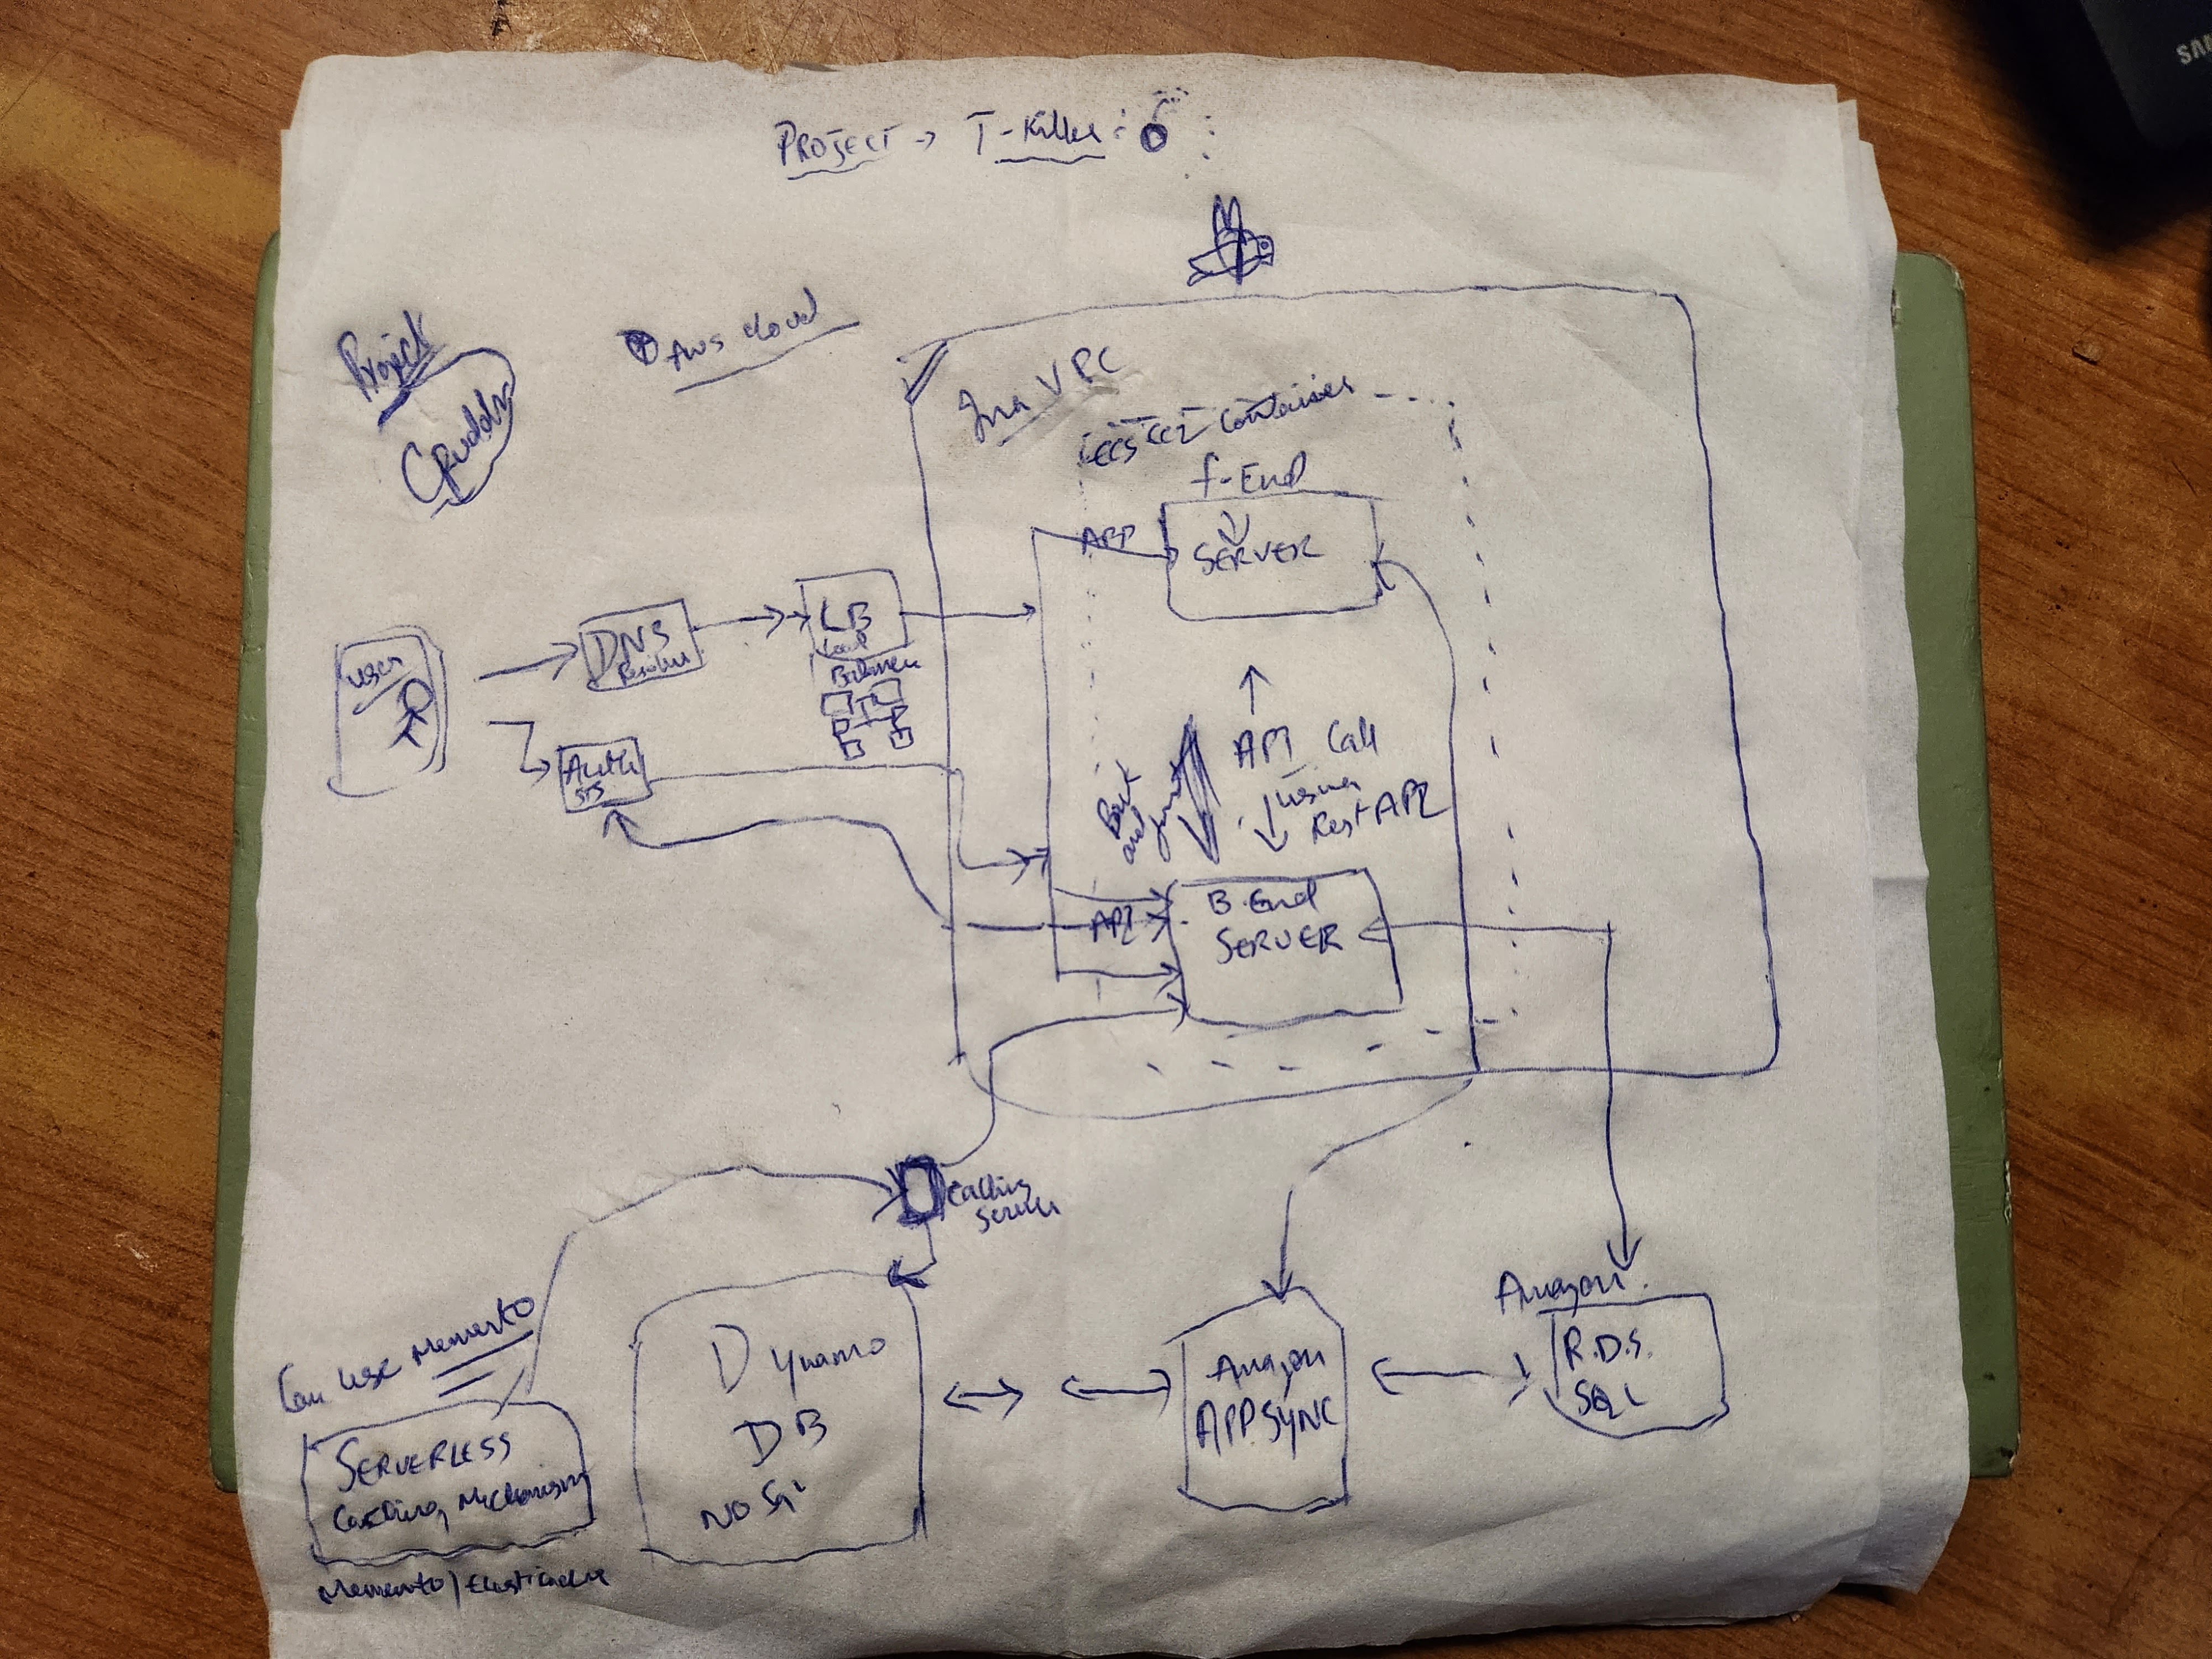 SAM
PROJECT → T-Killer :
Project
Cruddr
AWS Cloud
In a VPC
ECS EC2 Container
f-End
SERVER
APP
User
DNS
LB
Load
Balancer
Auth
Back
and
API Call
using
Rest API
API
B-End
SERVER
Caching
Server
Can use Memento
SERVERLESS
Caching Mechanism
Memento/Elasticache
Dynamo
DB
NO Sql
Amazon
APPSYNC
Amazon
R.D.S.
SQL